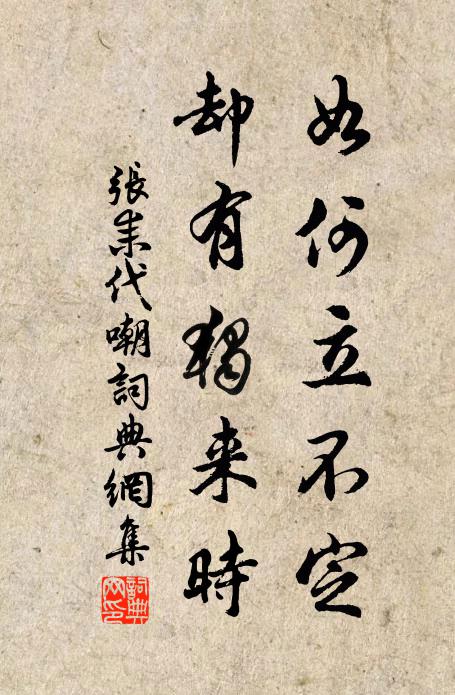 如何立不定
却有獨来時
張耒代嘲詞典網集
詞典網印